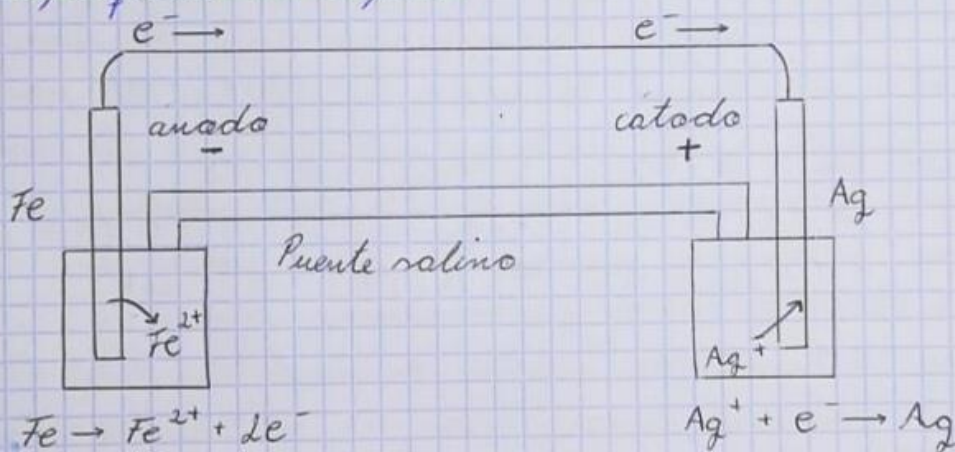 e⁻ → e⁻ →
anodo catodo
- +
Fe Ag
Puente salino
Fe²⁺ Ag⁺
Fe → Fe²⁺ + 2e⁻ Ag⁺ + e⁻ → Ag